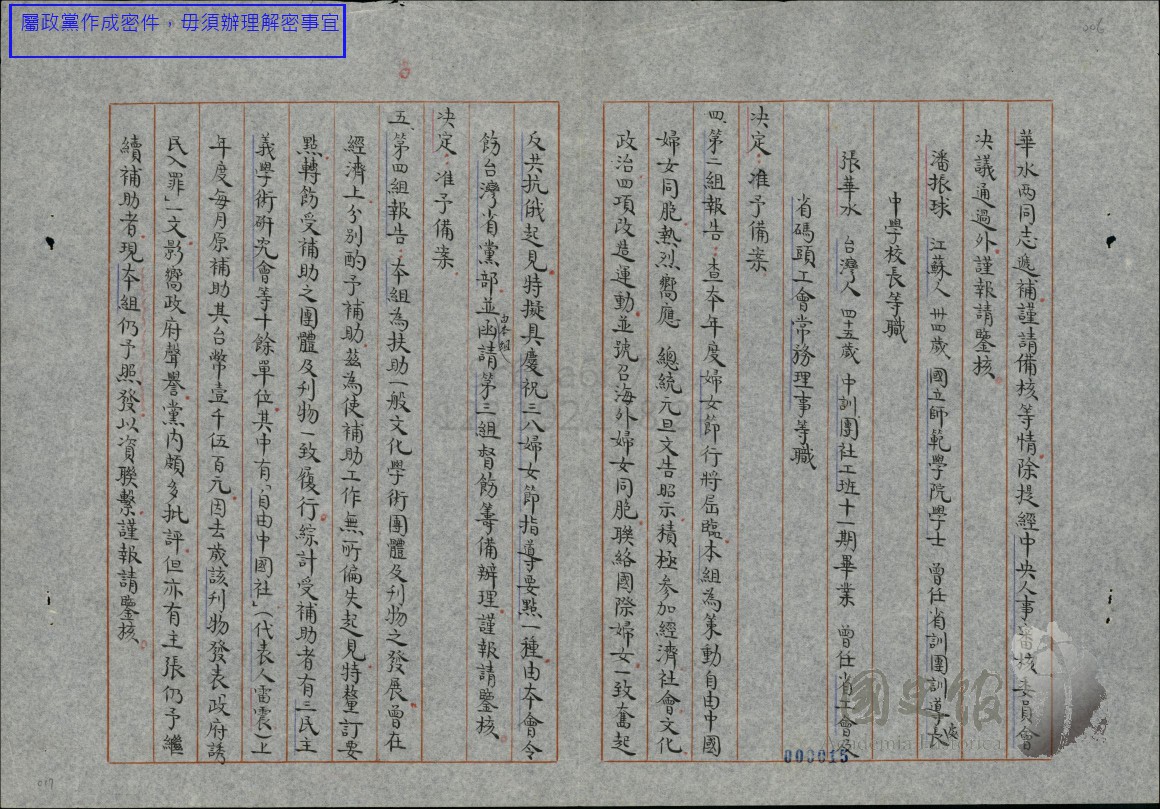 屬政黨作成密件，毋須辦理解密事宜
006
華水兩同志遞補謹請備核等情除提經中央人事審核委員會
決議通過外謹報請鑒核
潘振球　江蘇人　卅四歲　國立師範學院學士　曾任省訓團訓導處長
中學校長等職
張華水　台灣人　四十五歲　中訓團社工班十一期畢業　曾任省工會及
省碼頭工會常務理事等職
決定：准予備案
四、第二組報告：查本年度婦女節行將屆臨本組為策動自由中國
婦女同胞熱烈嚮應　總統元旦文告昭示積極參加經濟社會文化
政治四項改造運動並號召海外婦女同胞聯絡國際婦女一致奮起
反共抗俄起見特擬具慶祝三八婦女節指導要點一種由本會令
飭台灣省黨部並由本組函請第三組督飭籌備辦理謹報請鑒核
決定：准予備案
五、第四組報告：本組為扶助一般文化學術團體及刊物之發展曾在
經濟上分別酌予補助茲為使補助工作無所偏失起見特釐訂要
點轉飭受補助之團體及刊物一致履行綜計受補助者有三民主
義學術研究會等十餘單位其中有「自由中國社」（代表人雷震）上
年度每月原補助其台幣壹千伍百元因去歲該刊物發表「政府誘
民入罪」一文影嚮政府聲譽黨內頗多批評但亦有主張仍予繼
續補助者現本組仍予照發以資聯繫謹報請鑒核
國史館
Academia Historica
000015
017